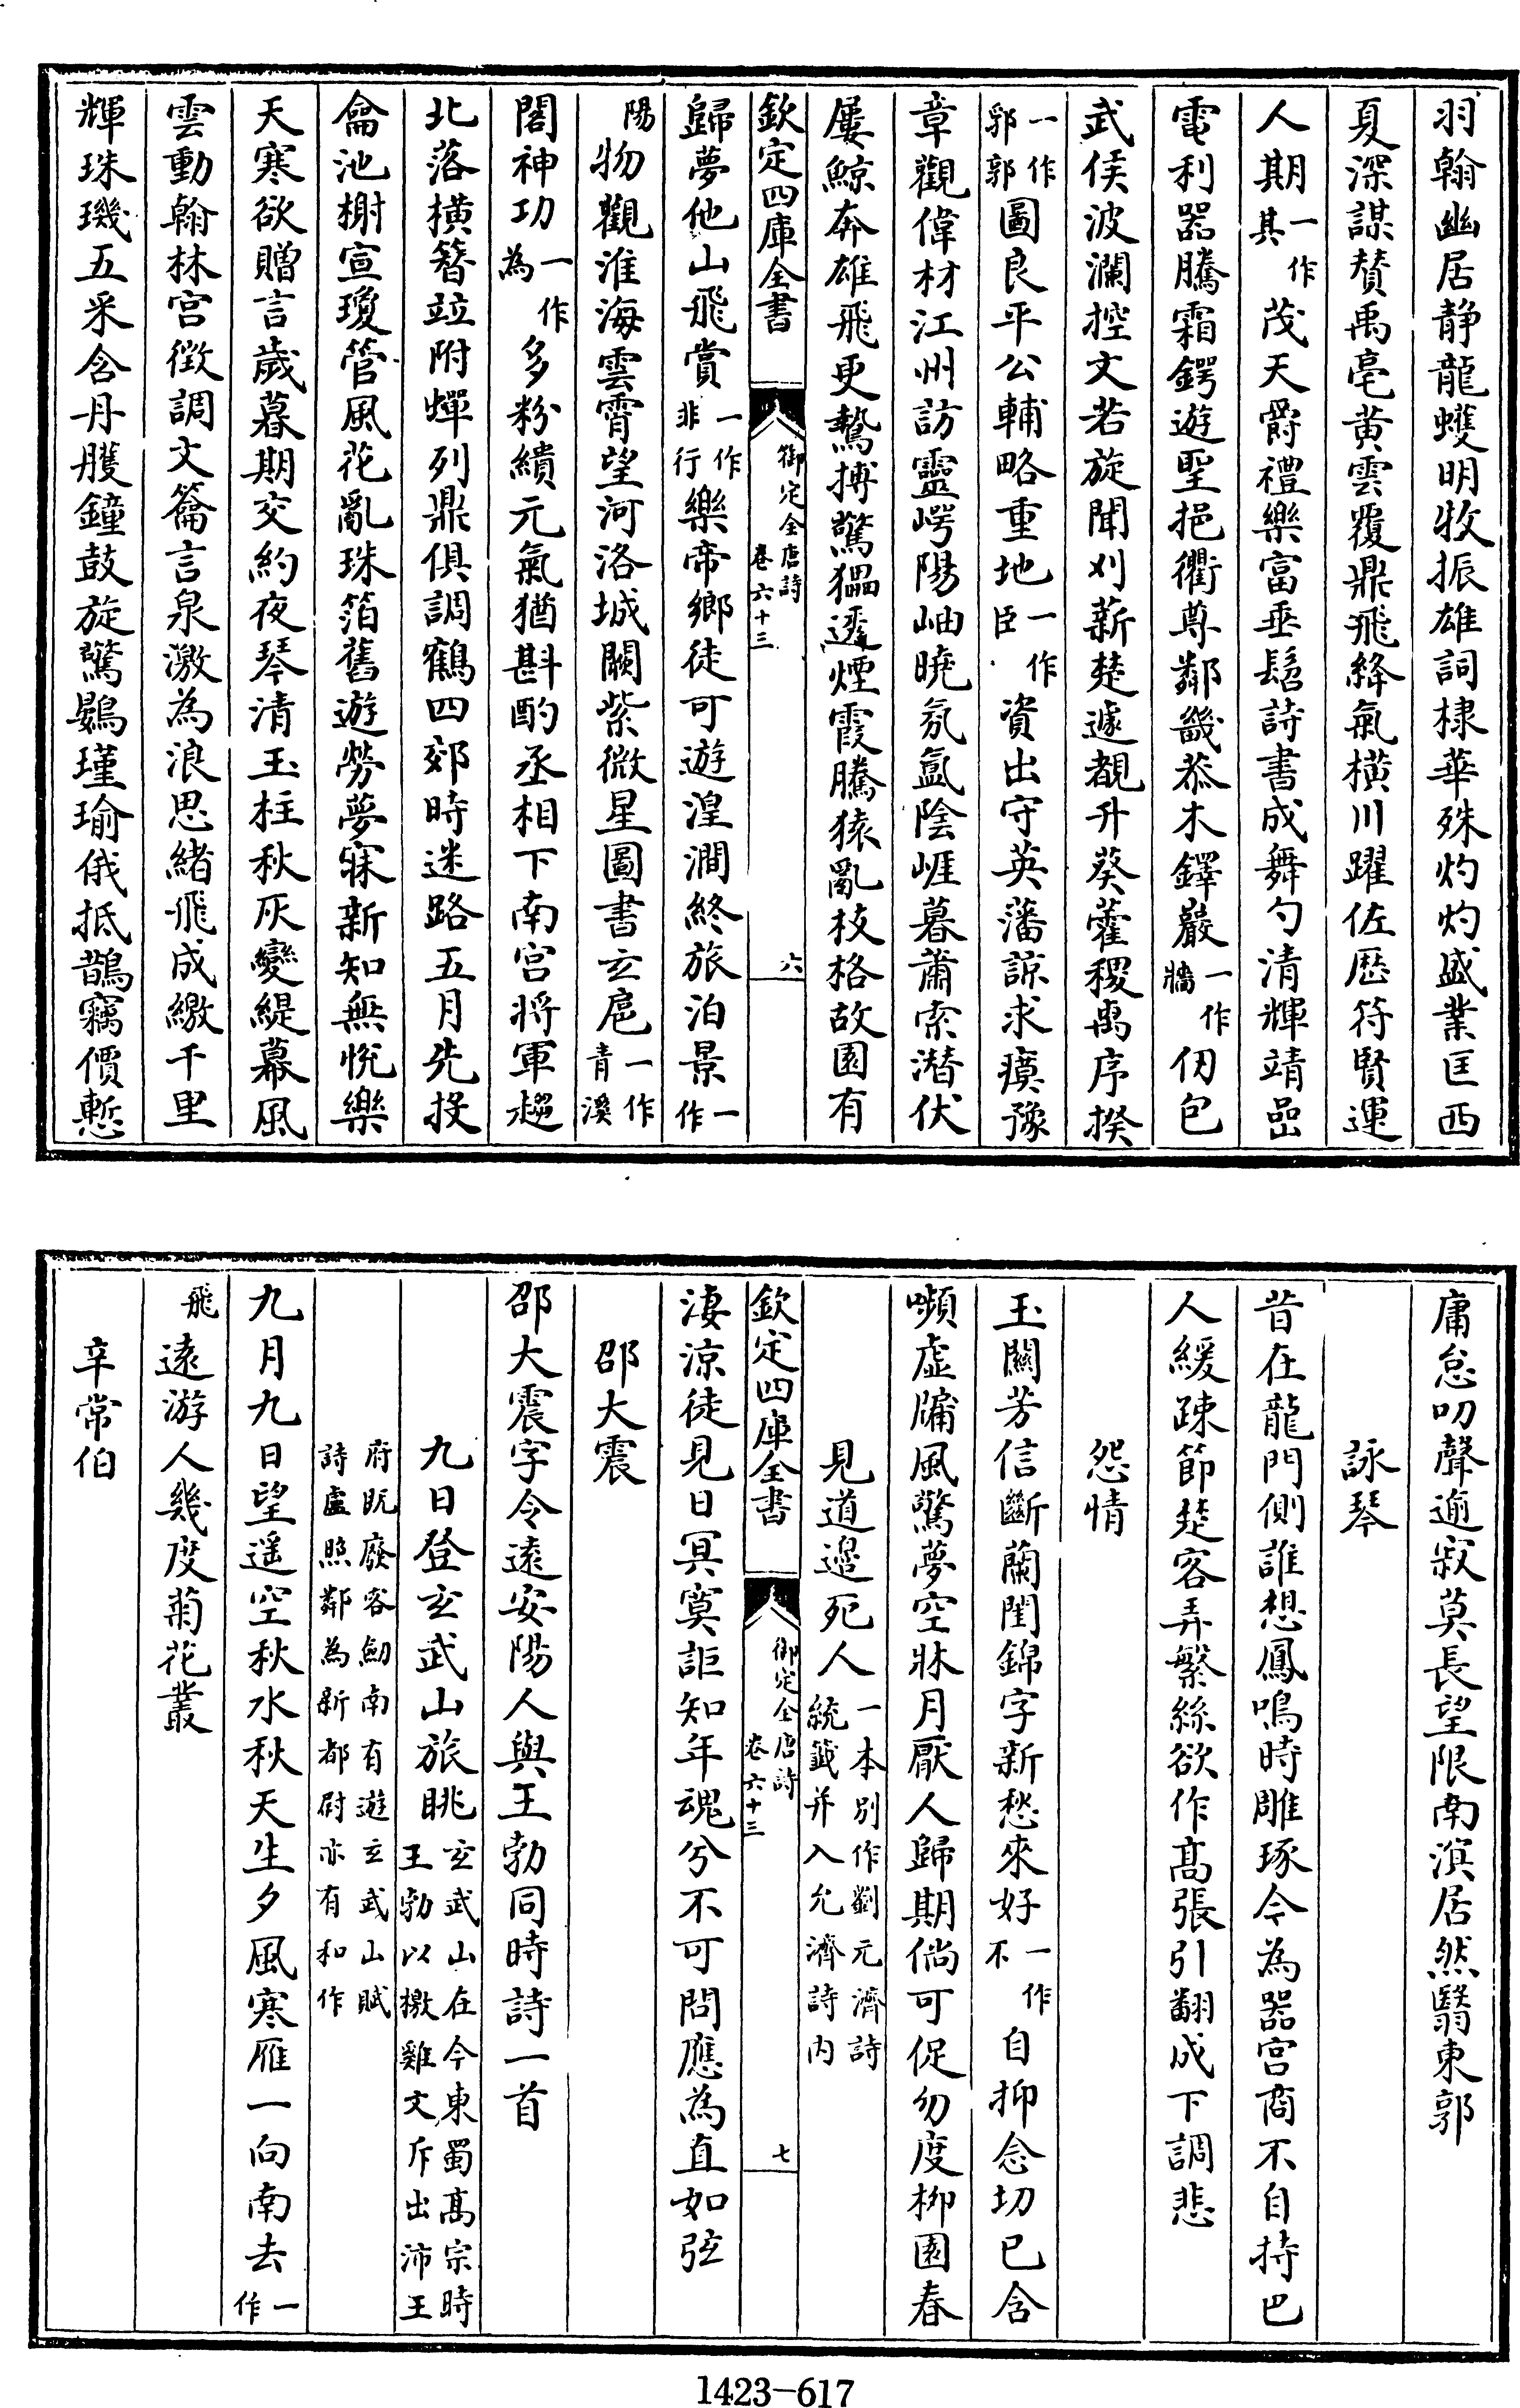 羽翰幽居静龍蠖明牧振雄詞棣華殊灼灼盛業匡西
夏深謀賛禹亳黄雲覆鼎飛絳氣横川躍佐歴符賢運
人期一作其茂天爵禮樂富垂髫詩書成舞勺清輝靖嵒
電利器騰霜鍔遊聖挹衢尊鄰畿恭木鐸嚴一作牆仞包
武侯波瀾控文若旋聞刈薪楚遽覩升葵藿稷禹序揆
一作郭鄂圖良平公輔略重地一作臣資出守英藩諒求瘼豫
章觀偉材江州訪靈崿陽岫曉氛氲陰崕暮蕭索潜伏
屢鯨奔雄飛更鷙搏驚猵透煙霞騰猿亂枝格故園有
欽定四庫全書
御定全唐詩
卷六十三
六
歸夢他山飛賞一作非行樂帝鄉徒可遊湟澗終旅泊景一作
陽物觀淮海雲霄望河洛城闕紫微星圖書玄扈一作青溪
閣神功一作為多粉繢元氣猶斟酌丞相下南宫將軍趨
北落横簪竝附蟬列鼎俱調鶴四郊時迷路五月先投
龠池榭宣瓊管風花亂珠箔舊遊勞夢寐新知無悦樂
天寒欲贈言歲暮期交約夜琴清玉柱秋灰變緹幕風
雲動翰林宫徴調文籥言泉激為浪思緒飛成繳千里
輝珠璣五采含丹雘鐘鼓旋驚鷃瑾瑜俄抵鵲竊價慙
庸怠叨聲逾寂莫長望限南溟居然翳東郭
詠琴
昔在龍門側誰想鳳鳴時雕琢今為器宫商不自持巴
人緩疎節楚客弄繁絲欲作髙張引翻成下調悲
怨情
玉關芳信斷蘭閨錦字新愁來好一作不自抑念切已含
嚬虚牖風驚夢空牀月厭人歸期倘可促勿度柳園春
見道邉死人一本别作劉元濟詩統籖并入允濟詩内
欽定四庫全書
御定全唐詩
卷六十三
七
淒涼徒見日冥寞詎知年魂兮不可問應為直如弦
邵大震
邵大震字令遠安陽人與王勃同時詩一首
九日登玄武山旅眺玄武山在今東蜀髙宗時王勃以檄雞文斥出沛王
府既廢客劒南有遊玄武山賦詩盧照鄰為新都尉亦有和作
九月九日望遥空秋水秋天生夕風寒雁一向南去一作
飛逺游人幾度菊花叢
辛常伯
1423-617